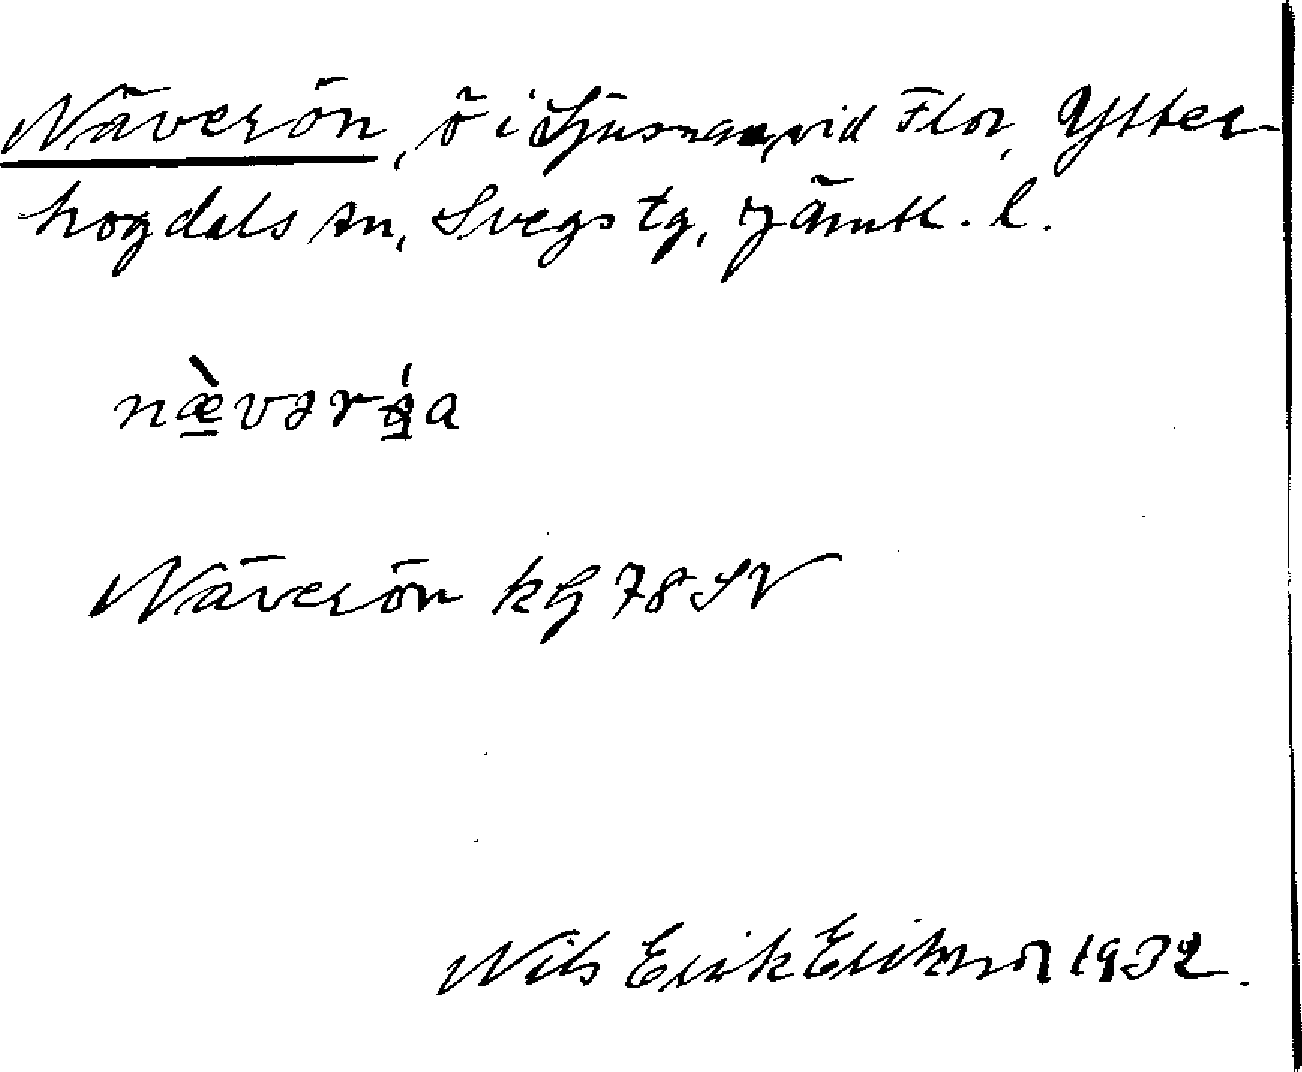 Näverön, ö i Ljusnan, vid Flor, Ytter-
hogdals sn, Svegs tg, Jämtl. l.
Näverön kg 78 SV
Nils Erik Eriksson 1932.